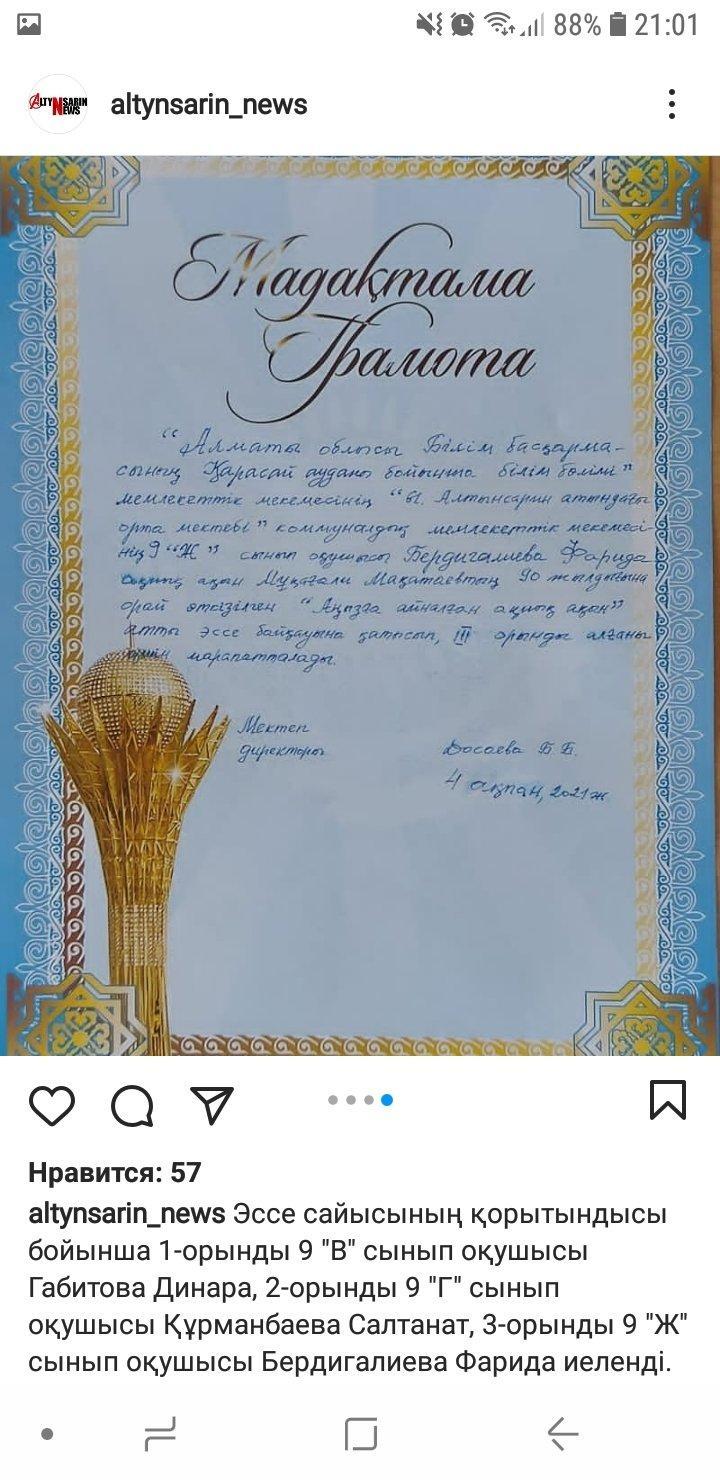 88% 21:01
ALTYNSARIN NEWS
altynsarin_news
Мадақтама
Грамота
"Алматы облысы Білім басқарма-
сының Қарасай ауданы бойынша білім бөлімі"
мемлекеттік мекемесінің "Ы. Алтынсарин атындағы
орта мектебі" коммуналдық мемлекеттік мекемесі-
нің 9 "Ж" сынып оқушысы Бердигалиева Фарида
ақиық ақын Мұқағали Мақатаевтың 90 жылдығына
орай өткізілген "Аңызға айналған ақиық ақын"
атты эссе байқауына қатысып, III орынды алғаны
үшін марапатталады.
Мектеп
директоры
Досаева Б.Б.
4 ақпан, 2021ж
Нравится: 57
altynsarin_news Эссе сайысының қорытындысы
бойынша 1-орынды 9 "В" сынып оқушысы
Габитова Динара, 2-орынды 9 "Г" сынып
оқушысы Құрманбаева Салтанат, 3-орынды 9 "Ж"
сынып оқушысы Бердигалиева Фарида иеленді.